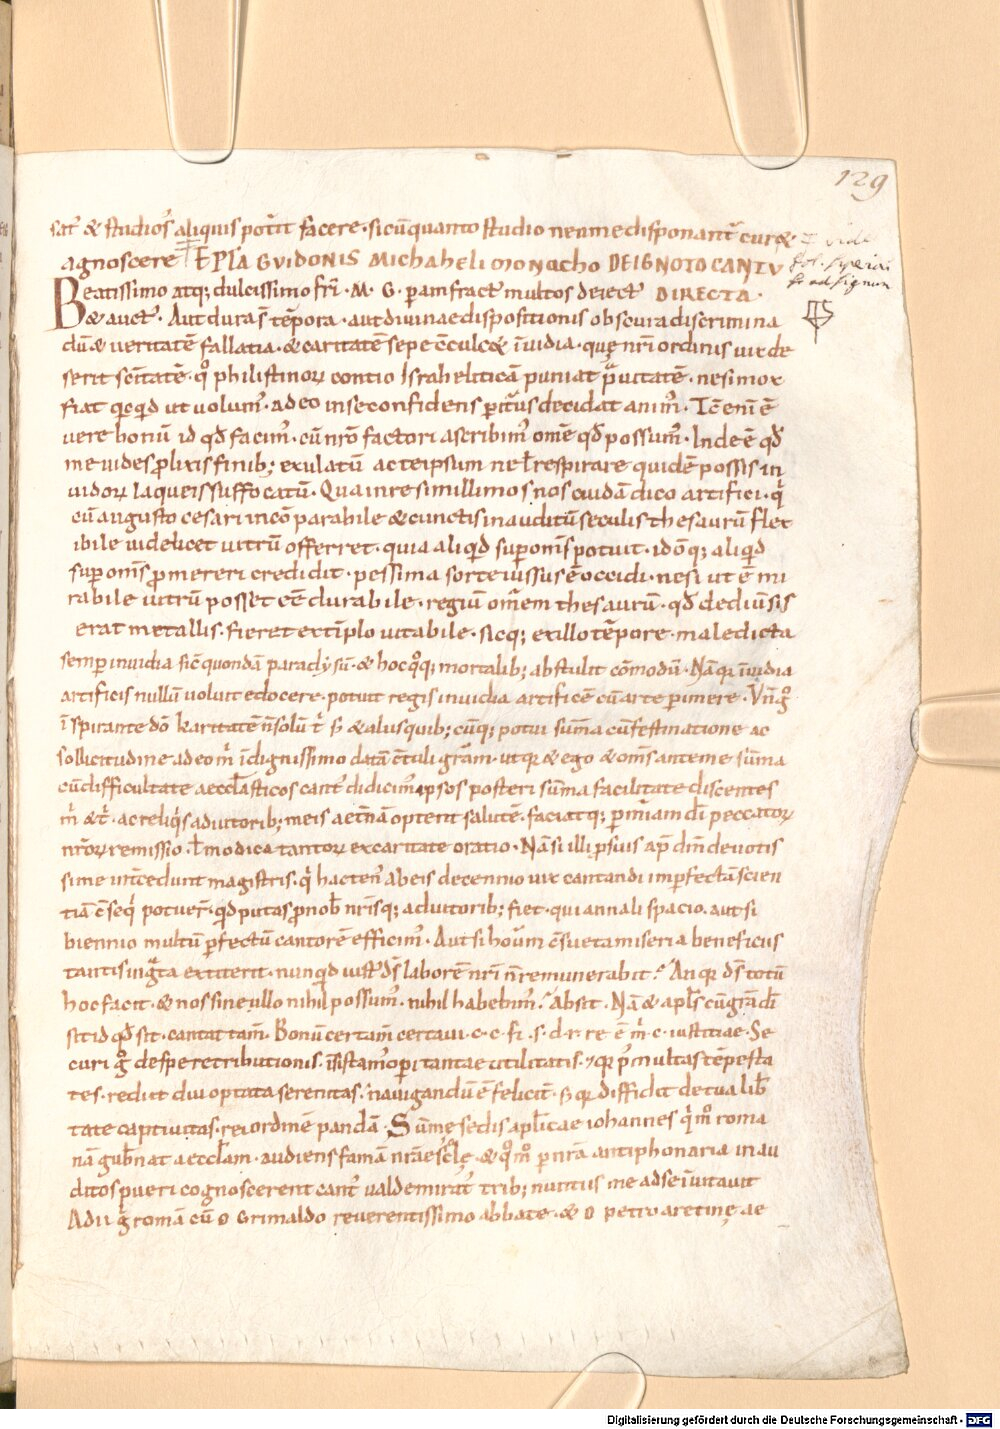 129
sat᷒ & studios᷒ aliquis potit facere · sicūquanto studio neumedisponant᷒ cur&
agnoscere EPLA GVIDONIS Michaheli monacho DEIGNOTO CANTV
Beatissimo atq; dulcissimo fri · M · G · pamfract᷒ multos deiect᷒ DIRECTA ·
& auct᷒ · Aut duras᷒ tēpora · aut diuinae dispositionis obscura discrimina
dū & ueritatē fallatia · & caritatē sepe cculc& īuidia · quę nri ordinis uix de
serit sctatē · qo philistinoꝝ contio Israheliticā puniat prauitatē · ne si mox
fiat qicqid ut uolum᷒ · adeo in se confidens perit᷒us decidat anim᷒ · Tc̄ eni ē
uere bonū id qd facim᷒ · cū nro factori ascribim᷒ ome qd possum᷒ · Inde ē qd
me uides prolixis finib; exulatū ac te ipsum ne ł respirare quidē possis in
uidoꝝ laqueis suffocatū · Qua in re simillimos nos cuidā dico artifici · qi
cū augusto cesari incōparabile & cunctis inauditū seculis thesaurū flex
ibile uidelicet uitrū offerret · quia aliqid sup oms potuit · idōq; aliqid
sup oms promereri credidit · pessima sorte iussus ē occidi · ne si ut ē mi
rabile uitrū posset eē durabile · regiū omem thesaurū · qd de diuersis
erat metallis · fieret extēplo uitabile · sicq; ex illo tēpore · maledicta
semp inuidia sic̄ quondā paradysū · & hoc qoq; mortalib; abstulit cōmodū · Nā qa īuidia
artificis nullū uoluit edocere · potuit regis inuidia artificē cū arte pimere · Vn̄ go
īspirante dō karitatē n̄ solū ti s; & aliis quib; cūq; potui sūma cū festinatione ac
sollicitudine a deo mi īdignissimo datā ctuli gram · ut qa & ego & oms ante me sūma
cū difficultate aecclasticos cant᷒ didicim᷒ ipsos posteri sūma facilitate discentes
mi & ti · ac reliqis adiutorib; meis aetnā optent salutē · faciatq; p miam di peccatoꝝ
nroꝝ remissio · ł modica tantoꝝ ex caritate oratio · Nā si illi p suis ap dm deuotis
sime intcedunt magistris · qi hacten᷒ ab eis decennio uix cantandi imperfectā scien
tiā cseqi potuer᷒ · qd putas pro nob nrisq; adiutorib; fiet · qui annali spacio · aut si
biennio multū perfectū cantorē efficim᷒ · Aut si hoiūm csueta miseria beneficiis
tantis ingrata extiterit · nunqid iust᷒ ds laborē nri n̄ remunerabit? An qa ds totū
hoc facit · & nos sine illo nihil possum᷒ · nihil habebim᷒? Absit · Nā & apls cū gra di
sit id qd sit · cantat tam᷒ · Bonū certam᷒ certaui · c · c · fi · s · d · r · re ē mi · c · iustitiae · Se
curi go de spe retributionis · īsistam᷒ opi tantae utilitatis · & qa p multas tēpesta
tes · rediit diu optata serenitas · nauigandū ē felicit᷒ · S; qa diffidit de tua lib
tate captiuitas · rei ordinē pandā · Sūmę sedis aplicae iohannes qi mo roma
nā gubnat aecclam · audiens famā nrae scolę · & qo mo p nrā antiphonaria inau
ditos pueri cognoscerent cant᷒ ualde mirat᷒ trib; nuntiis me ad se īuitauit
Adii go romā cū d Grimaldo reuerentissimo abbate · & d petro aretinę ae
Digitalisierung gefördert durch die Deutsche Forschungsgemeinschaft · DFG